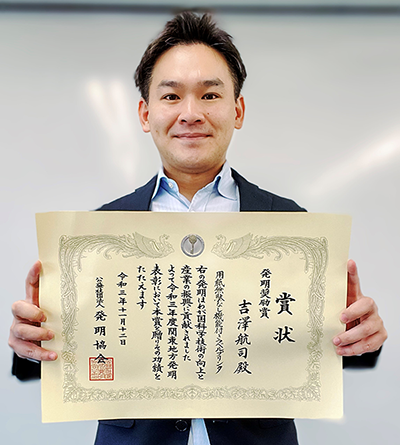 賞状
発明奨励賞
吉澤航司殿
用紙無駄なし機能付
右の発明はわが国科学技術の向上と
産業の振興に貢献されました
よって令和三年度関東地方発明
表彰において本賞を贈りその功績を
たたえます
令和三年十一月十一日
公益社団法人発明協会